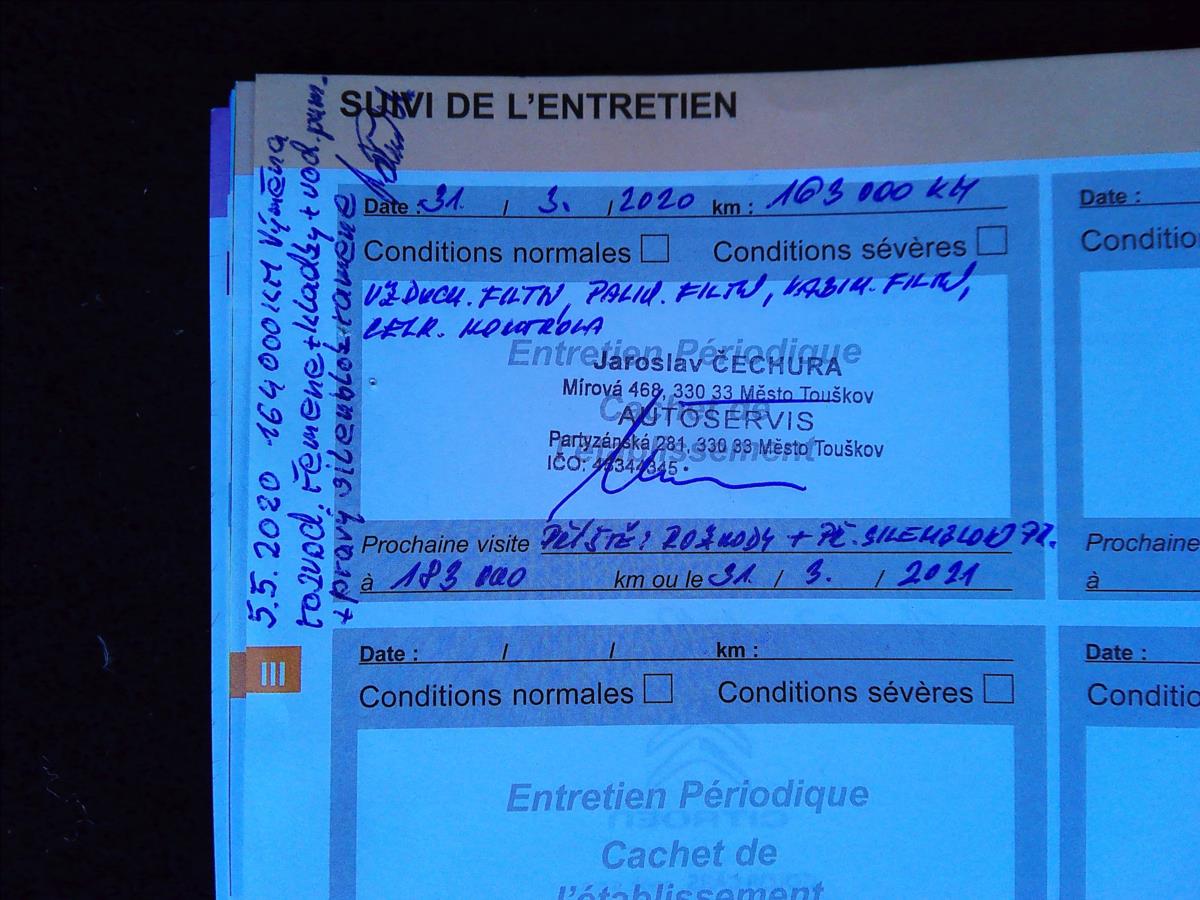 SUIVI DE L'ENTRETIEN
5.5.2020 164000KM Výměna
rozvod. řemene+kladky+vod.pum.
+pravý silenblok ramene
Date : 31. / 3. / 2020 km : 163 000 KM
Conditions normales Conditions sévères
VZDUCH. FILTR, PALIV. FILTR, KABIN. FILTR,
CELK. KONTROLA
Entretien Périodique
Jaroslav ČECHURA
Mírová 468, 330 33 Město Touškov
Cachet de
AUTOSERVIS
Partyzánská 281, 330 33 Město Touškov
l'établissement
IČO:
Prochaine visite PŘÍŠTĚ: ROZVODY + PŘ. SILENBLOKY PŘ.
à 183 000 km ou le 31. / 3. / 2021
III
Date : / / km :
Conditions normales Conditions sévères
Entretien Périodique
Cachet de
l'établissement
Date :
Conditio
Prochaine
à
Date :
Conditio